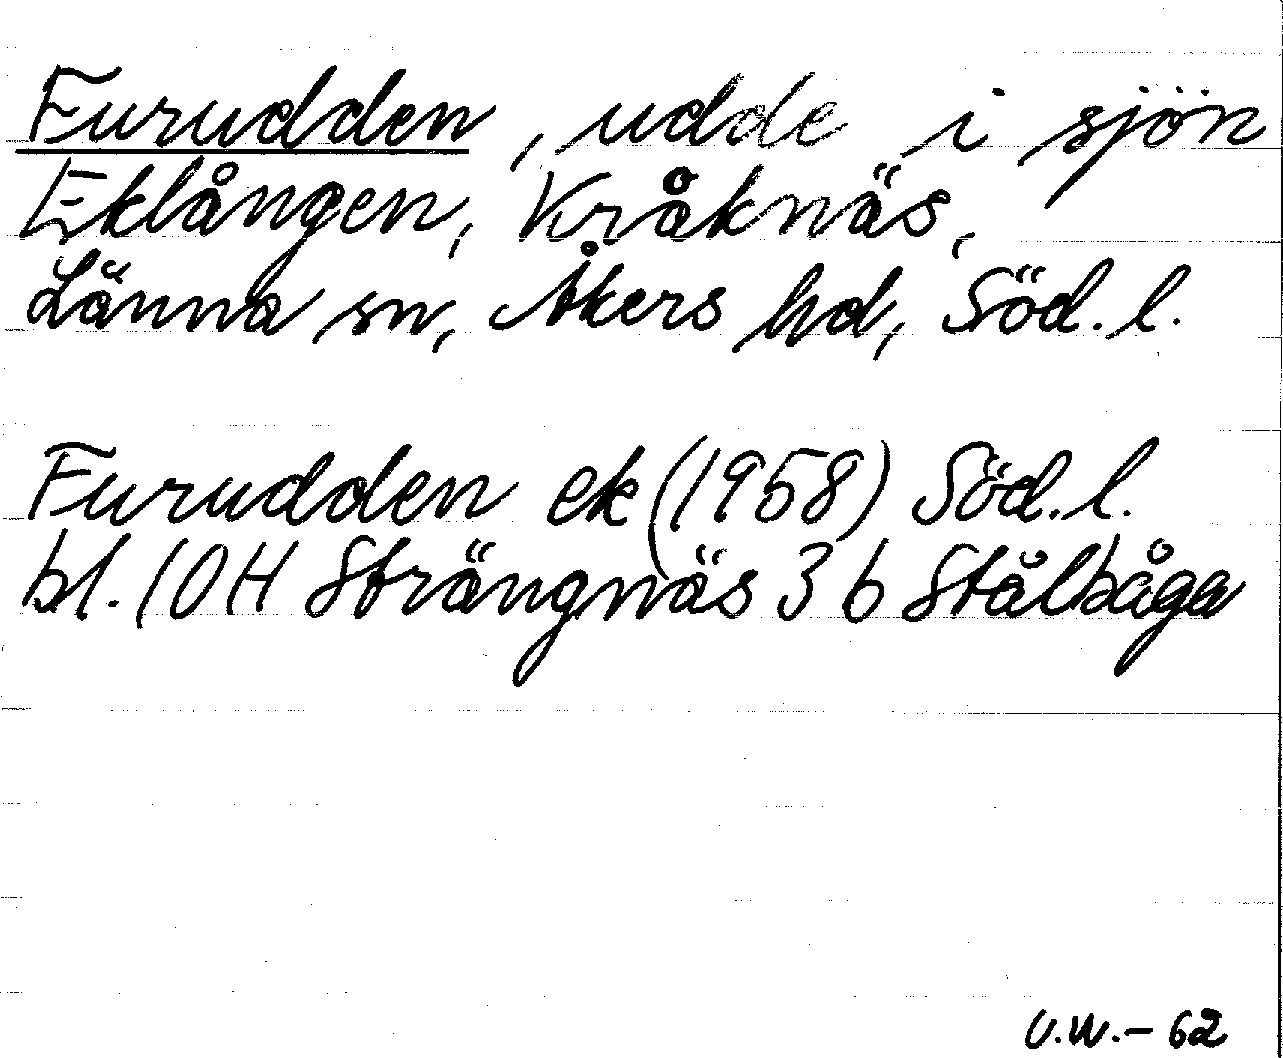 Furudden, udde i sjön
Eklången, Kråknäs,
Länna sn, Åkers hd, Söd. l.
Furudden ek (1958) Söd. l.
bl. 10H Strängnäs 3 b Stålbåga
U.W. - 62